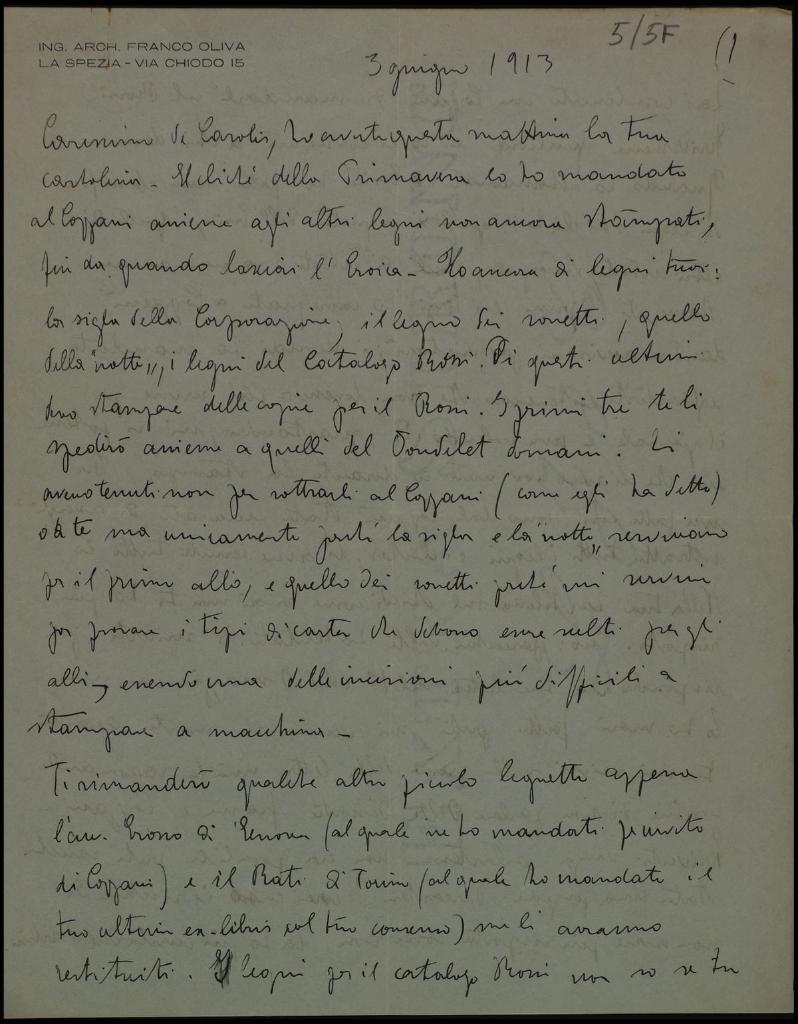 5/5F
ING. ARCH. FRANCO OLIVA
LA SPEZIA - VIA CHIODO 15
3 giugno 1913
Carissimo De Carolis, ho avuto questa mattina la tua
cartolina - Il cliché della Primavera lo ho mandato
al Cozzani assieme agli altri legni non ancora stampati,
fin da quando lasciai l'Eroica - Ho ancora di legni tuoi:
la sigla della Corporazione, il legno dei sonetti, quello
della "notte", i legni del Catalogo Rossi. Di questi ultimi
devo stampare delle copie per il Rossi. I primi tre te li
spedirò assieme a quelli del domani. Li
avevo tenuti non per sottrarli al Cozzani (come egli ha detto)
o a te ma unicamente perché la sigla e la "notte" servivano
per il primo albo, e quello dei sonetti perché mi servivi
per provare i tipi di carta che debono essere scelti per gli
albi, essendo una delle incisioni più difficili a
stampare a macchina -
Ti rimanderò qualche altro piccolo legnetto appena
l'avv. di Genova (al quale ne ho mandati per invito
di Cozzani) e il Rati di Torino (al quale ho mandato il
tuo ultimo ex-libris col tuo consenso) me li avranno
restituiti. I legni per il catalogo Rossi non so se tu